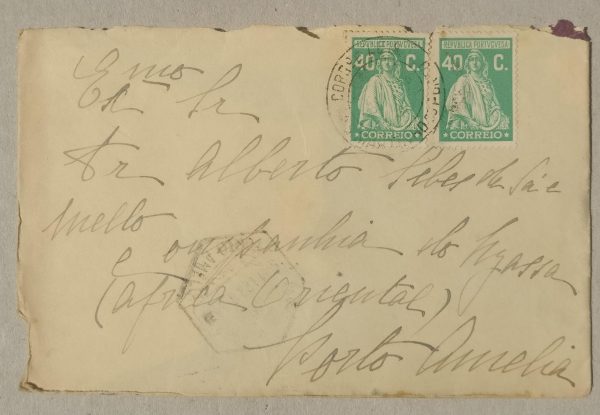 REPUBLICA PORTUGUESA
40 C.
CORREIO
REPUBLICA PORTUGUESA
40 C.
CORREIO
Exmo Sr
Dr Alberto Teles de Sá e
Mello
Companhia do Nyassa
(Africa Oriental)
Porto Amelia